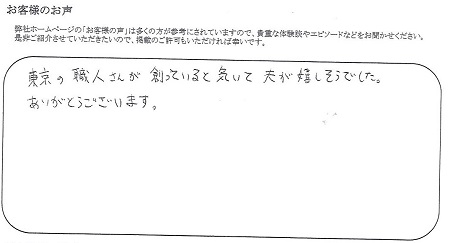 お客様のお声
弊社ホームページの「お客様の声」は多くの方が参考にされていますので、貴重な体験談やエピソードなどをお聞かせください。
是非ご紹介させていただきたいので、掲載のご許可もいただければ幸いです。
東京の職人さんが創っていると気いて夫が嬉しそうでした。
ありがとうございます。